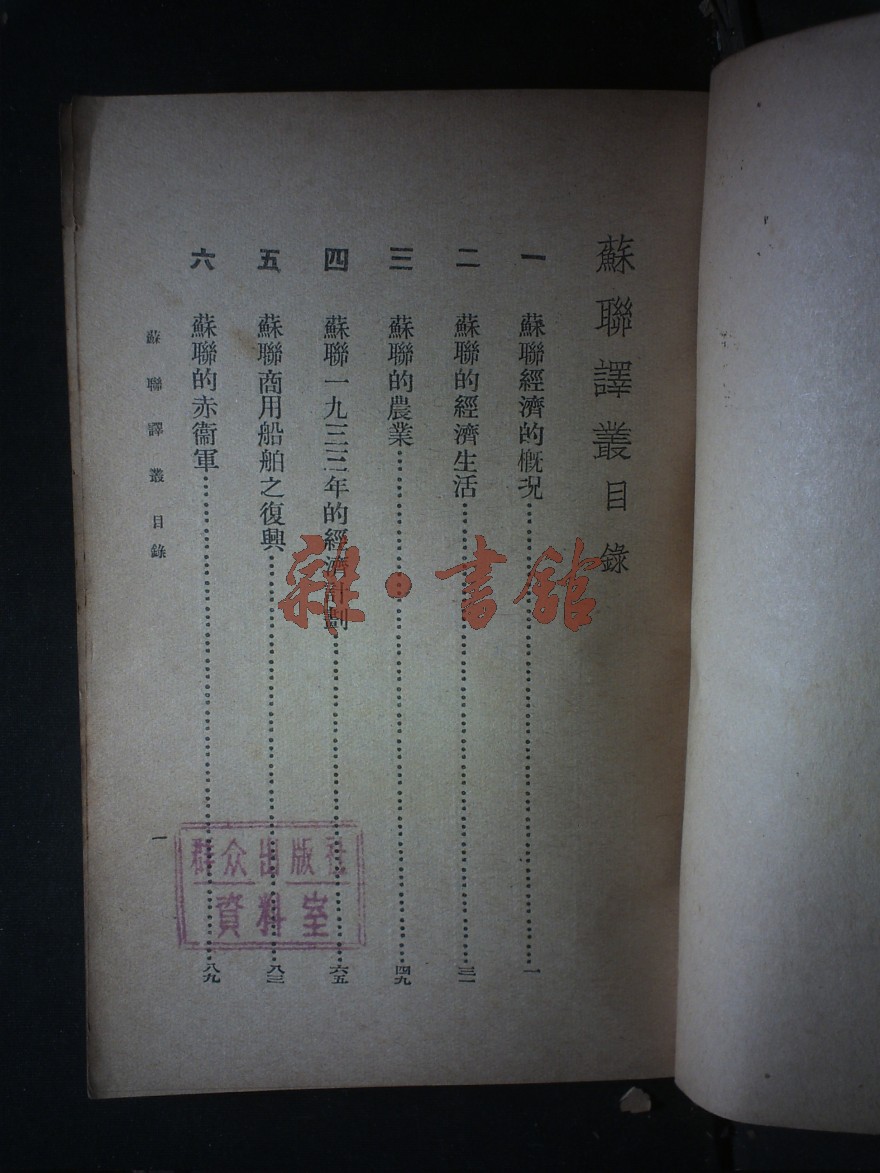 蘇聯譯叢目錄
一 蘇聯經濟的概況……一
二 蘇聯的經濟生活……三一
三 蘇聯的農業……四九
四 蘇聯一九三三年的經濟計劃……六五
五 蘇聯商用船舶之復興……八三
六 蘇聯的赤衞軍……八九
蘇聯譯叢 目錄
一
雜·書館
群众出版社
資料室